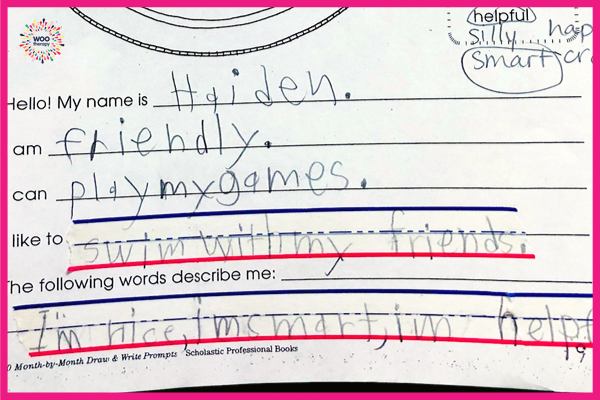 WOO
therapy
helpful
Silly hap
Smart cr
Hello! My name is Haiden.
am friendly.
can play my games.
like to swim with my friends.
The following words describe me:
I'm nice, I'm smart, i'm helpf
0 Month-by-Month Draw & Write Prompts Scholastic Professional Books
19